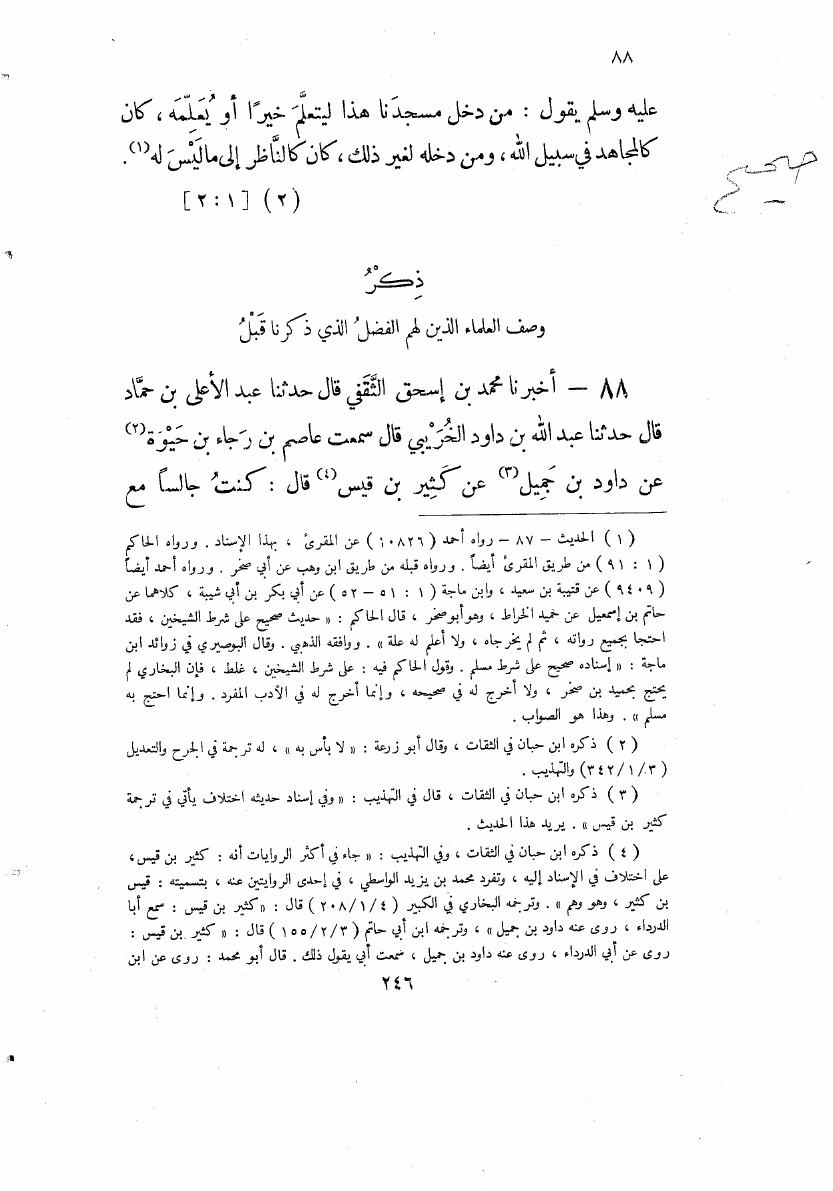 ٨٨
عليه وسلم يقول : من دخل مسجدَنا هذا ليتعلَّمَ خيرًا أو يُعَلِّمَه ، كان
كالمجاهد في سبيل الله ، ومن دخله لغير ذلك ، كان كالنَّاظر إلى ما لَيْسَ له(١).
(٢) [٢:١]
صحيح
ذِكْرُ
وصف العلماء الذين لهم الفضلُ الذي ذكرنا قَبْلُ
٨٨ — أخبرنا محمد بن إسحق الثَّقَفي قال حدثنا عبد الأعلى بن حمَّاد
قال حدثنا عبد الله بن داود الخُرَيْبي قال سمعت عاصم بن رَجاء بن حَيْوَة(٢)
عن داود بن جَمِيل(٣) عن كَثِير بن قيس(٤) قال : كنتُ جالساً مع
(١) الحديث — ٨٧ — رواه أحمد (١٠٨٢٦) عن المقرئ ، بهذا الإسناد . ورواه الحاكم
(١ : ٩١) من طريق المقرئ أيضاً . ورواه قبله من طريق ابن وهب عن أبي صخر . ورواه أحمد أيضاً
(٩٤٠٩) عن قتيبة بن سعيد ، وابن ماجة (١ : ٥١ — ٥٢) عن أبي بكر بن أبي شيبة ، كلاهما عن
حاتم بن إسمعيل عن حميد الخراط ، وهو أبو صخر ، قال الحاكم : « حديث صحيح على شرط الشيخين ، فقد
احتجا بجميع رواته ، ثم لم يخرجاه ، ولا أعلم له علة » . ووافقه الذهبي . وقال البوصيري في زوائد ابن
ماجة : « إسناده صحيح على شرط مسلم . وقول الحاكم فيه : على شرط الشيخين ، غلط ، فإن البخاري لم
يحتج بحميد بن صخر ، ولا أخرج له في صحيحه ، وإنما أخرج له في الأدب المفرد . وإنما احتج به
مسلم » . وهذا هو الصواب .
(٢) ذكره ابن حبان في الثقات ، وقال أبو زرعة : « لا بأس به » ، له ترجمة في الجرح والتعديل
(٣٤٢/١/٣) والتهذيب .
(٣) ذكره ابن حبان في الثقات ، قال في التهذيب : « وفي إسناد حديثه اختلاف يأتي في ترجمة
كثير بن قيس » . يريد هذا الحديث .
(٤) ذكره ابن حبان في الثقات ، وفي التهذيب : « جاء في أكثر الروايات أنه : كثير بن قيس ،
على اختلاف في الإسناد إليه ، وتفرد محمد بن يزيد الواسطي ، في إحدى الروايتين عنه ، بتسميته : قيس
بن كثير ، وهو وهم » . وترجمه البخاري في الكبير (٢٠٨/١/٤) قال : « كثير بن قيس : سمع أبا
الدرداء ، روى عنه داود بن جميل » ، وترجمه ابن أبي حاتم (١٥٥/٢/٣) قال : « كثير بن قيس :
روى عن أبي الدرداء ، روى عنه داود بن جميل ، سمعت أبي يقول ذلك . قال أبو محمد : روى عن ابن
٢٤٦